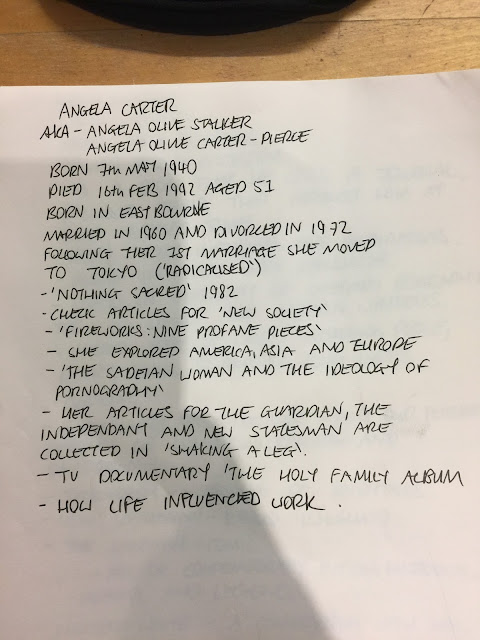 ANGELA CARTER
AKA - ANGELA OLIVE STALKER
ANGELA OLIVE CARTER-PIERCE
BORN 7TH MAY 1940
DIED 16TH FEB 1992 AGED 51
BORN IN EASTBOURNE
MARRIED IN 1960 AND DIVORCED IN 1972
FOLLOWING HER 1ST MARRIAGE SHE MOVED
TO TOKYO ('RADICALISED')
- 'NOTHING SACRED' 1982
- CHECK ARTICLES FOR 'NEW SOCIETY'
- 'FIREWORKS: NINE PROFANE PIECES'
- SHE EXPLORED AMERICA, ASIA AND EUROPE
- 'THE SADEIAN WOMAN AND THE IDEOLOGY OF
PORNOGRAPHY'
- HER ARTICLES FOR THE GUARDIAN, THE
INDEPENDANT AND NEW STATESMAN ARE
COLLECTED IN 'SHAKING A LEG'.
- TV DOCUMENTARY 'THE HOLY FAMILY ALBUM
- HOW LIFE INFLUENCED WORK.